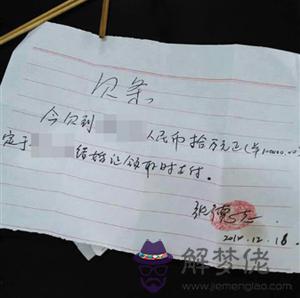 欠条
今欠到 人民币拾万元正(
定于 结婚证领取时支付。
张德
2010.12.18
解梦佬
http://www.jiemenglao.com/